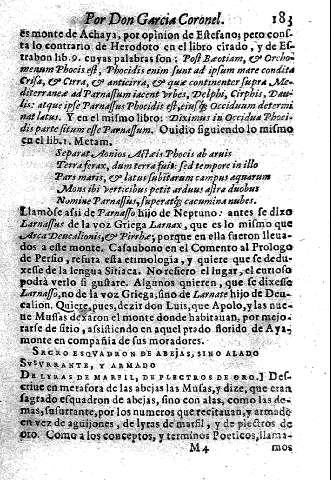 Por Don Garcia Coronel. 183
es monte de Achaya, por opinion de Estefano; pero consta
lo contrario de Herodoto en el libro citado, y de Estrabon
lib. 9. cuyas palabras son: Post Bæotiam, & Orchomenum
Phocis est, Phocidis enim sunt ad ipsum mare condita
Crisa, & Cirra, & anticirra, & quæ continenter supra Mediterraneæ
ad Parnassum iacent vrbes, Delphi, Cirphis, Daulis:
atque ipse Parnassus Phocidit est, eiusq; Occiduum determinat
latus. Y en el mismo libro: Diximus in Occidua Phocidis
parte sitam esse Parnassum. Ouidio siguiendo lo mismo
en el lib. 1. Metam.
Separat Aonios Actæis Phocis ab aruis
Terra ferax, dum terra fuit: sed tempore in illo
Pars maris, & latus subitarum campus aquarum
Mons ibi verticibus petit arduus astra duobus
Nomine Parnassus, superatq; cacumina nubes.
Llamóse assi de Parnasso hijo de Neptuno: antes se dixo
Larnassus de la voz Griega Larnax, que es lo mismo que
Arca Deucalionis, & Pirrhæ, porque en ella fueron lleuados
a este monte. Casaubono en el Comento al Prologo
de Persio, refuta esta etimologia, y quiere que se deduxesse
de la lengua Siriaca. No refiero el lugar, el curioso
podrá verlo si gustare. Algunos quieren, que se dixesse
Larnasso, no de la voz Griega, sino de Larnate hijo de Deucalion.
Quiere, pues, dezir don Luis, que Apolo, y las nueue
Musas dexaron el monte donde habitauan, por mejorarse
de sitio, assistiendo en aquel prado florido de Ayamonte
en compañia de sus moradores.
SACRO ESQVADRON DE ABEJAS, SINO ALADO
SVSVRRANTE, Y ARMADO
DE LYRAS DE MARFIL, DE PLECTROS DE ORO.] Descriue
en metafora de las abejas las Musas, y dize, que eran
sagrado esquadron de abejas, sino con alas, como las demas,
susurrante, por los numeros que recitauan, y armado
en vez de aguijones, de lyras de marfil, y de plectros de
oro. Como a los conceptos, y terminos Poeticos, llama-
M 4 mos